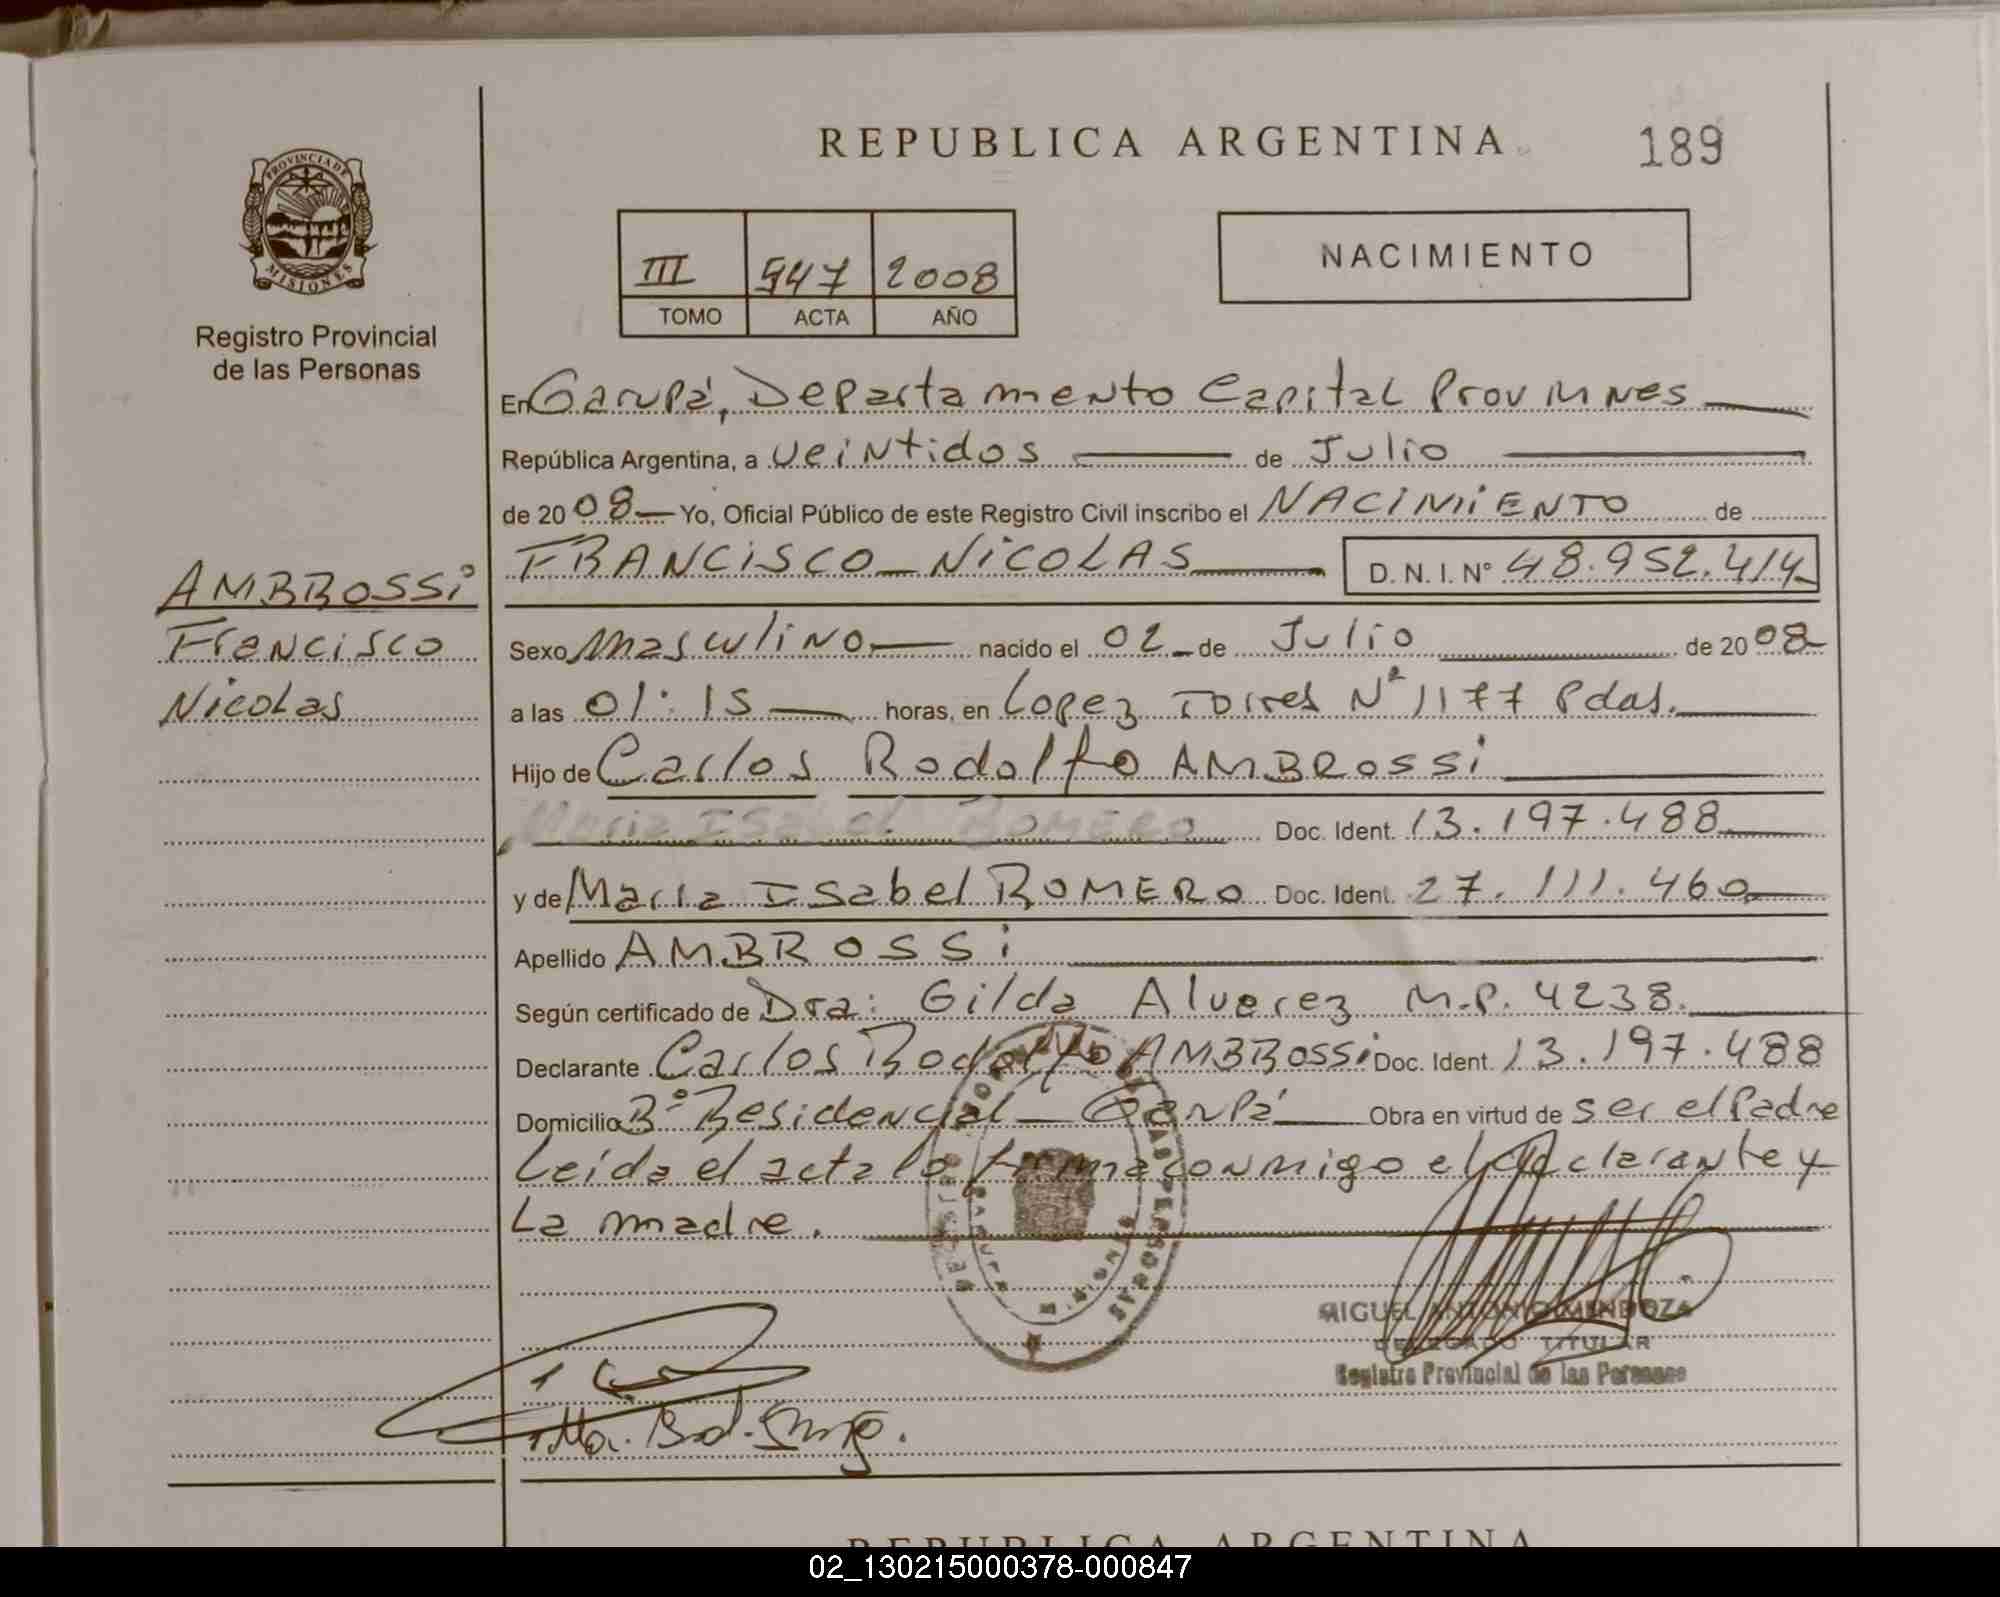 REPUBLICA ARGENTINA 189
PROVINCIA DE
MISIONES
Registro Provincial
de las Personas
III 547 2008
TOMO ACTA AÑO
NACIMIENTO
En Garupá, Departamento Capital Prov Mnes
República Argentina, a veintidos de Julio
de 2008 Yo, Oficial Público de este Registro Civil inscribo el NACIMIENTO de
FRANCISCO NICOLAS D. N. I. Nº 48.952.414
AMBROSSI
Francisco
Nicolas
Sexo Masculino nacido el 02 de Julio de 2008
a las 01:15 horas, en Lopez Torres Nº 1177 Pdas.
Hijo de Carlos Rodolfo AMBROSSI
Maria Isabel ROMERO Doc. Ident. 13.197.488
y de Maria Isabel ROMERO Doc. Ident. 27.111.460
Apellido AMBROSSI
Según certificado de Dra: Gilda Alvarez M.P. 4238.
Declarante Carlos Rodolfo AMBROSSI Doc. Ident. 13.197.488
Domicilio Bº Residencial - Garupá Obra en virtud de ser el Padre
Leída el acta la firma conmigo el declarante y
La madre.
MIGUEL ANTONIO MENDOZA
DELEGADO TITULAR
Registro Provincial de las Personas
REPUBLICA ARGENTINA
02_130215000378-000847